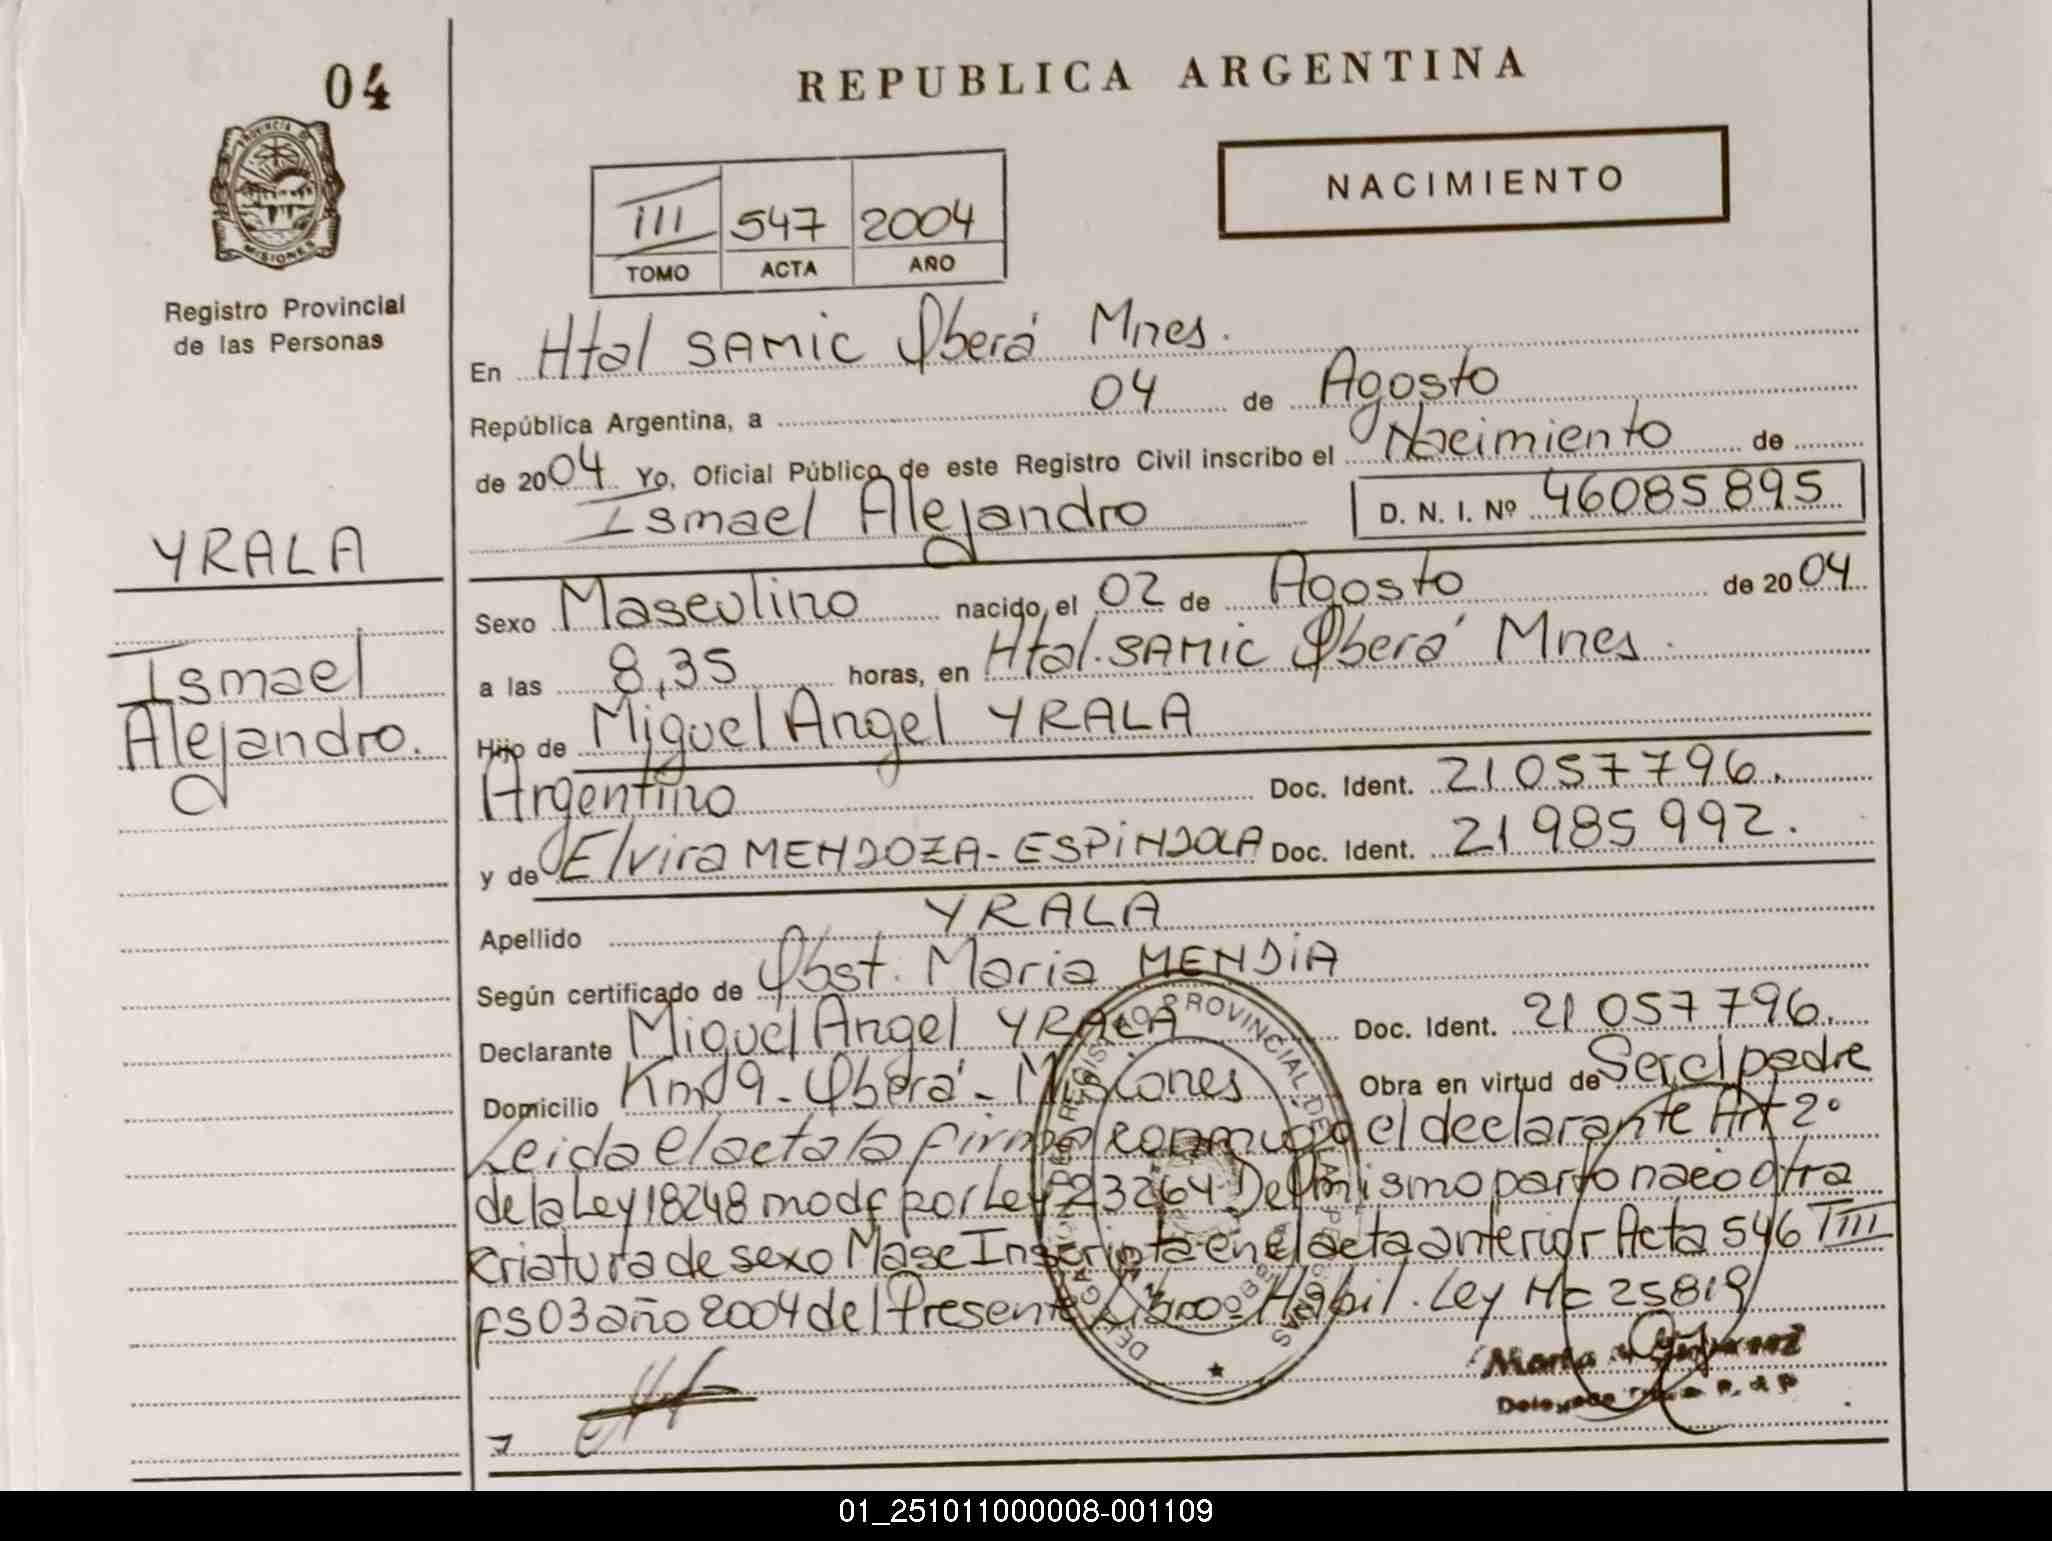 04
REPUBLICA ARGENTINA
PROVINCIA DE
MISIONES
Registro Provincial
de las Personas
NACIMIENTO
III 547 2004
TOMO ACTA AÑO
En Htal SAMIC Oberá Mnes.
República Argentina, a 04 de Agosto
de 2004 Yo, Oficial Público de este Registro Civil inscribo el Nacimiento de
Ismael Alejandro D. N. I. Nº 46085895
YRALA
Ismael
Alejandro.
Sexo Masculino nacido el 02 de Agosto de 2004
a las 8,35 horas, en Htal. SAMIC Oberá Mnes.
Hijo de Miguel Angel YRALA
Argentino Doc. Ident. 21057796.
y de Elvira MENDOZA-ESPINDOLA Doc. Ident. 21985992.
Apellido YRALA
Según certificado de Obst. Maria MENDIA
Declarante Miguel Angel YRALA Doc. Ident. 21057796.
Domicilio Km 9 - Oberá - Misiones Obra en virtud de Ser el padre
Leida el acta la firma conmigo el declarante Art 2º
de la Ley 18248 modf por Ley 23264 Del mismo parto nacio otra
criatura de sexo Masc Inscripta en el acta anterior Acta 546 TIII
fs 03 año 2004 del Presente Libro Habil. Ley Nº 25819
DELEGACION DEL REGISTRO PROVINCIAL DE LAS PERSONAS
01_251011000008-001109